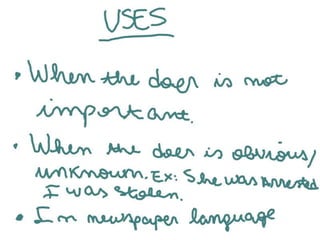 USES
• When the doer is not
important.
• When the doer is obvious/
unknown. Ex: She was arrested
I was stolen.
• In newspaper language